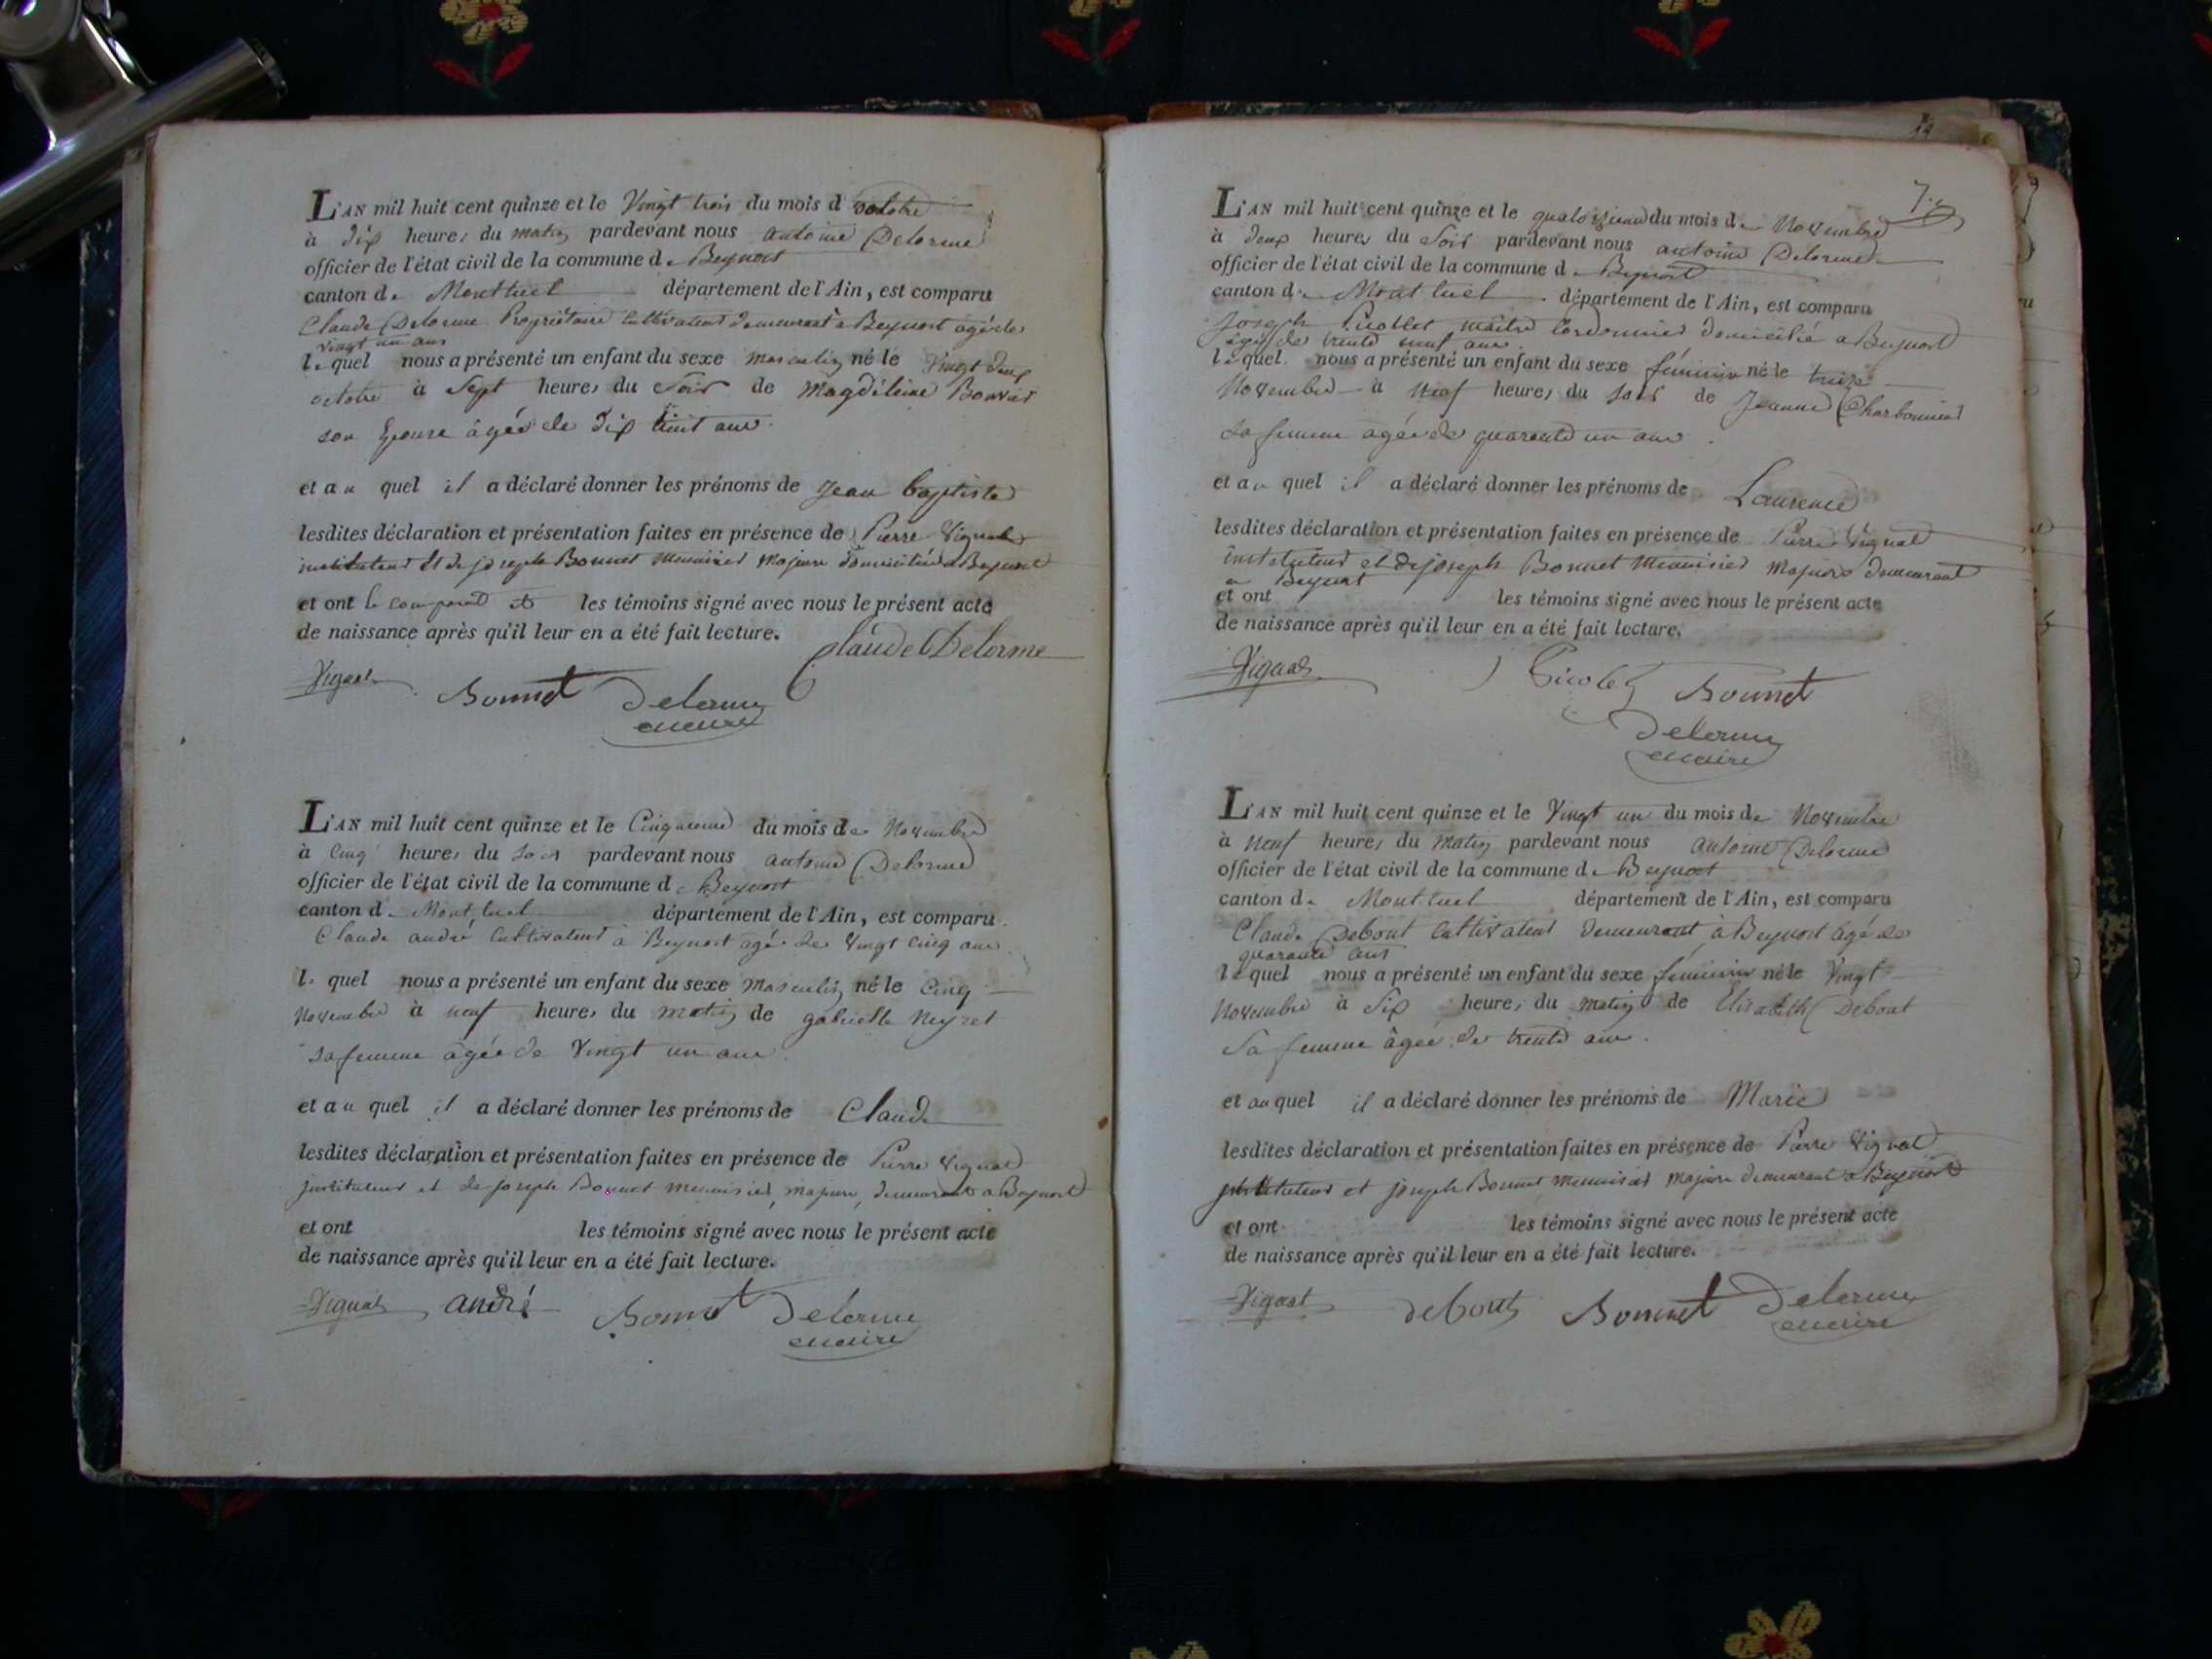 L'AN mil huit cent quinze et le Vingt trois du mois d'octobre
à dix heures du matin pardevant nous antoine Delorme
officier de l'état civil de la commune de Beynost
canton de Montluel département de l'Ain, est comparu
Claude Delorme Propriétaire Cultivateur demeurant a Beynost agé de
vingt un ans
lequel nous a présenté un enfant du sexe masculin né le Vingt deux
octobre à Sept heures du Soir de Magdeleine Bouvier
son Epouse âgée de dix huit ans.
et au quel il a déclaré donner les prénoms de Jean baptiste
lesdites déclaration et présentation faites en présence de Pierre Vignat
instituteur et de joseph Bonnet Menuisier Majeurs domiciliés a Beynost
et ont le comparant et les témoins signé avec nous le présent acte
de naissance après qu'il leur en a été fait lecture.
Claude Delorme
Vignat Bonnet Delorme
maire
L'AN mil huit cent quinze et le Cinquieme du mois de Novembre
à Cinq heures du soir pardevant nous antoine Delorme
officier de l'état civil de la commune de Beynost
canton de Montluel département de l'Ain, est comparu
Claude andré Cultivateur à Beynost agé de Vingt cinq ans
lequel nous a présenté un enfant du sexe Masculin né le Cinq
Novembre à neuf heures du matin de gabrielle Neyret
sa femme âgée de Vingt un ans.
et au quel il a déclaré donner les prénoms de Claude
lesdites déclaration et présentation faites en présence de Pierre Vignat
instituteur et de joseph Bonnet menuisier, majeurs, demeurant a Beynost
et ont les témoins signé avec nous le présent acte
de naissance après qu'il leur en a été fait lecture.
Vignat andré Bonnet Delorme
maire
19
7.e
L'AN mil huit cent quinze et le quatorzieme du mois de Novembre
à deux heures du Soir pardevant nous antoine Delorme
officier de l'état civil de la commune de Beynost
canton de Montluel département de l'Ain, est comparu
Joseph maître Cordonnier domicilié a Beynost
agé de trente neuf ans
lequel nous a présenté un enfant du sexe féminin né le treize
Novembre à Neuf heures du soir de Jeanne Charbonnier
sa femme agée de quarante un ans.
et au quel il a déclaré donner les prénoms de Laurence
lesdites déclaration et présentation faites en présence de Pierre Vignat
instituteur et de joseph Bonnet Menuisier Majeurs demeurant
a Beynost
et ont les témoins signé avec nous le présent acte
de naissance après qu'il leur en a été fait lecture.
Vignat Bonnet
Delorme
maire
L'AN mil huit cent quinze et le Vingt un du mois de Novembre
à Neuf heures du matin pardevant nous antoine Delorme
officier de l'état civil de la commune de Beynost
canton de Montluel département de l'Ain, est comparu
Claude Debout Cultivateur demeurant à Beynost âgé de
quarante ans
lequel nous a présenté un enfant du sexe féminin né le Vingt
Novembre à Six heures du matin de Elisabeth Debout
Sa femme âgée de trente ans.
et au quel il a déclaré donner les prénoms de Marie
lesdites déclaration et présentation faites en présence de Pierre Vignat
instituteur et joseph Bonnet menuisier majeurs demeurant a Beynost
et ont les témoins signé avec nous le présent acte
de naissance après qu'il leur en a été fait lecture.
Vignat debout Bonnet Delorme
maire